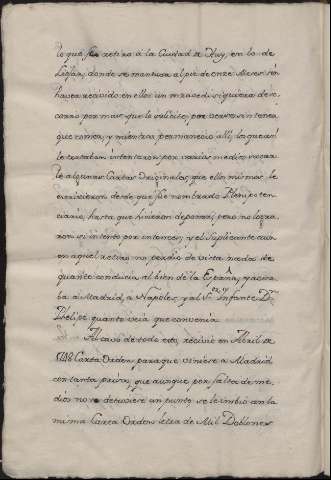 lo que se retiro á la Ciudad de Huy, en lo de
donde se mantuvo al pie de onze Meses sin
haver recivido en ellos un mrs. de so-
corro por mas que lo solicito, por verse sin tener
que comer, y mientras permanecio alli, los que así
le trataban intentaron por varios medios
le algunas Cartas Originales, que ellos mismos le
escrivieron desde que fue nombrado Plenipoten-
ciario, hasta que hicieron deponer; pero no logra-
ron su intento por entonces; y el Suplicante aun
en aquel retiro no perdio de vista nada de
quanto conducia al bien de la España, y
ba á Madrid, a Napoles, y al Sr. Infante Dn.
Phelipe quanto veia que convenia.
Al cavo de todo esto, recivió en Abril de
1748 Carta Orden para que viniese a Madrid
con tanta prisa, que aunque por falta de me-
dios no se detuviese un punto se le imbió en la
misma Carta Orden letra de Mil Doblones